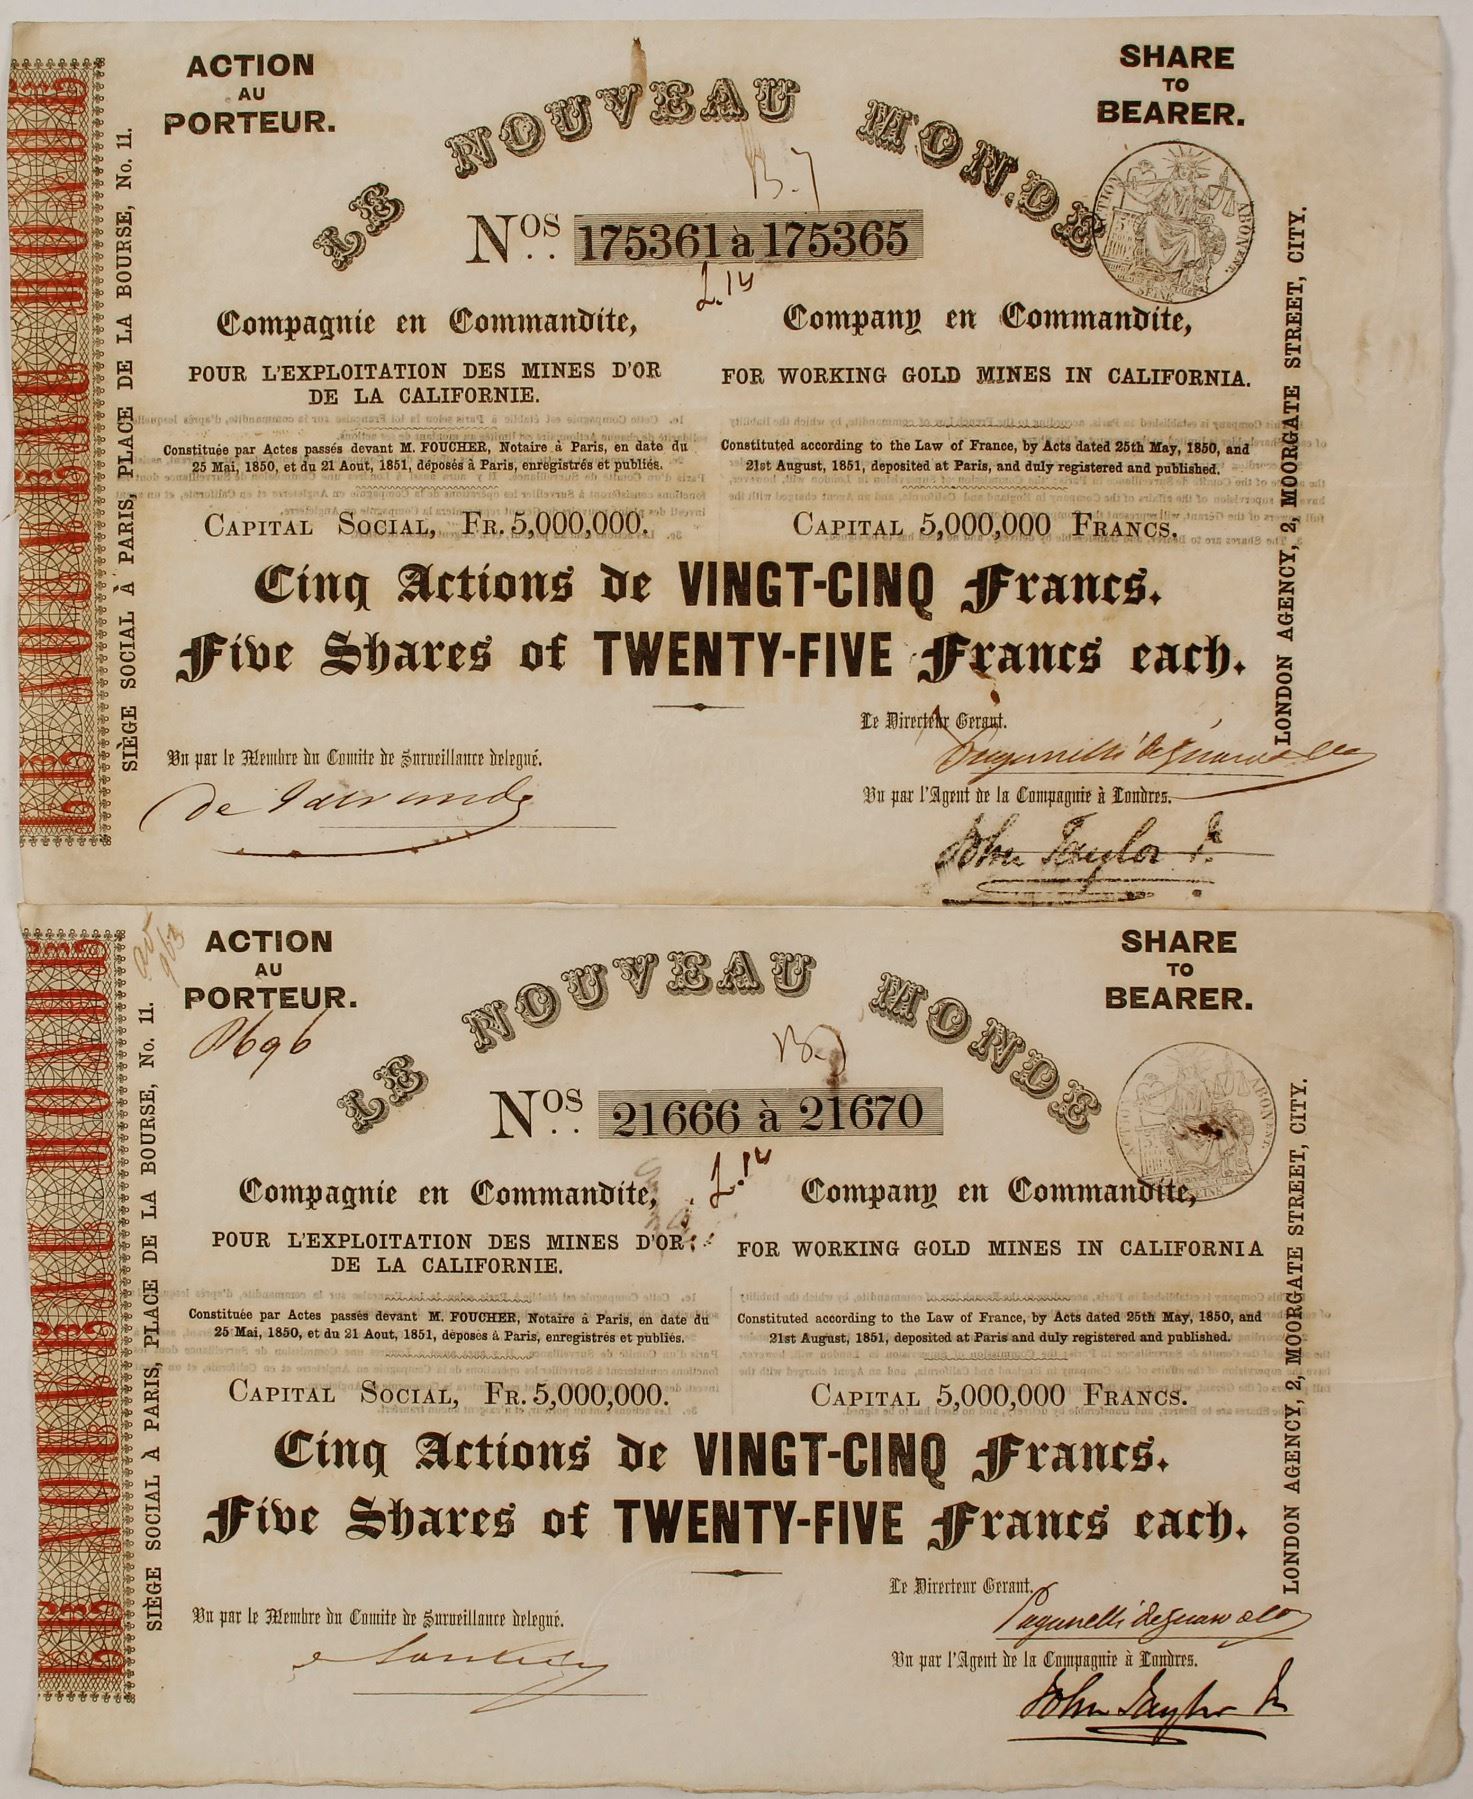 ACTION
AU
PORTEUR.
SHARE
TO
BEARER.
LE NOUVEAU MONDE
B. 7
Nos. 175361 à 175365
L. 14
Compagnie en Commandite,
POUR L'EXPLOITATION DES MINES D'OR
DE LA CALIFORNIE.
Constituée par Actes passés devant M. FOUCHER, Notaire à Paris, en date du
25 Mai, 1850, et du 21 Aout, 1851, déposés à Paris, enregistrés et publiés.
CAPITAL SOCIAL, FR. 5,000,000.
Company en Commandite,
FOR WORKING GOLD MINES IN CALIFORNIA.
Constituted according to the Law of France, by Acts dated 25th May, 1850, and
21st August, 1851, deposited at Paris, and duly registered and published.
CAPITAL 5,000,000 FRANCS.
Cinq Actions de VINGT-CINQ Francs.
Five Shares of TWENTY-FIVE Francs each.
Vu par le Membre du Comite de Surveillance delegué.
Le Directeur Gerant.
Vu par l'Agent de la Compagnie à Londres.
John Taylor Jr.
LE NOUVEAU MONDE
SIÈGE SOCIAL À PARIS, PLACE DE LA BOURSE, No. 11.
LONDON AGENCY, 2, MOORGATE STREET, CITY.
ABONENT.
SEINE
963
ACTION
AU
PORTEUR.
SHARE
TO
BEARER.
LE NOUVEAU MONDE
Nos. 21666 à 21670
L. 14
Compagnie en Commandite,
POUR L'EXPLOITATION DES MINES D'OR
DE LA CALIFORNIE.
Constituée par Actes passés devant M. FOUCHER, Notaire à Paris, en date du
25 Mai, 1850, et du 21 Aout, 1851, déposés à Paris, enregistrés et publiés.
CAPITAL SOCIAL, FR. 5,000,000.
Company en Commandite,
FOR WORKING GOLD MINES IN CALIFORNIA
Constituted according to the Law of France, by Acts dated 25th May, 1850, and
21st August, 1851, deposited at Paris and duly registered and published.
CAPITAL 5,000,000 FRANCS.
Cinq Actions de VINGT-CINQ Francs.
Five Shares of TWENTY-FIVE Francs each.
Vu par le Membre du Comite de Surveillance delegué.
Le Directeur Gerant.
Vu par l'Agent de la Compagnie à Londres.
John Taylor Jr
LE NOUVEAU MONDE
SIÈGE SOCIAL À PARIS, PLACE DE LA BOURSE, No. 11.
LONDON AGENCY, 2, MOORGATE STREET, CITY.
ACTION ABONENT.
SEINE